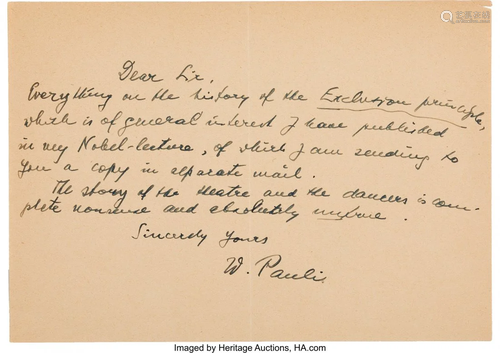 Dear Sir,
Everything on the history of the Exclusion principle,
which is of general interest I have published
in my Nobel-lecture, of which I am sending to
you a copy in separate mail.
The story of the theatre and the dancers is com-
plete nonsense and absolutely untrue.
Sincerely Yours
W. Pauli
Imaged by Heritage Auctions, HA.com